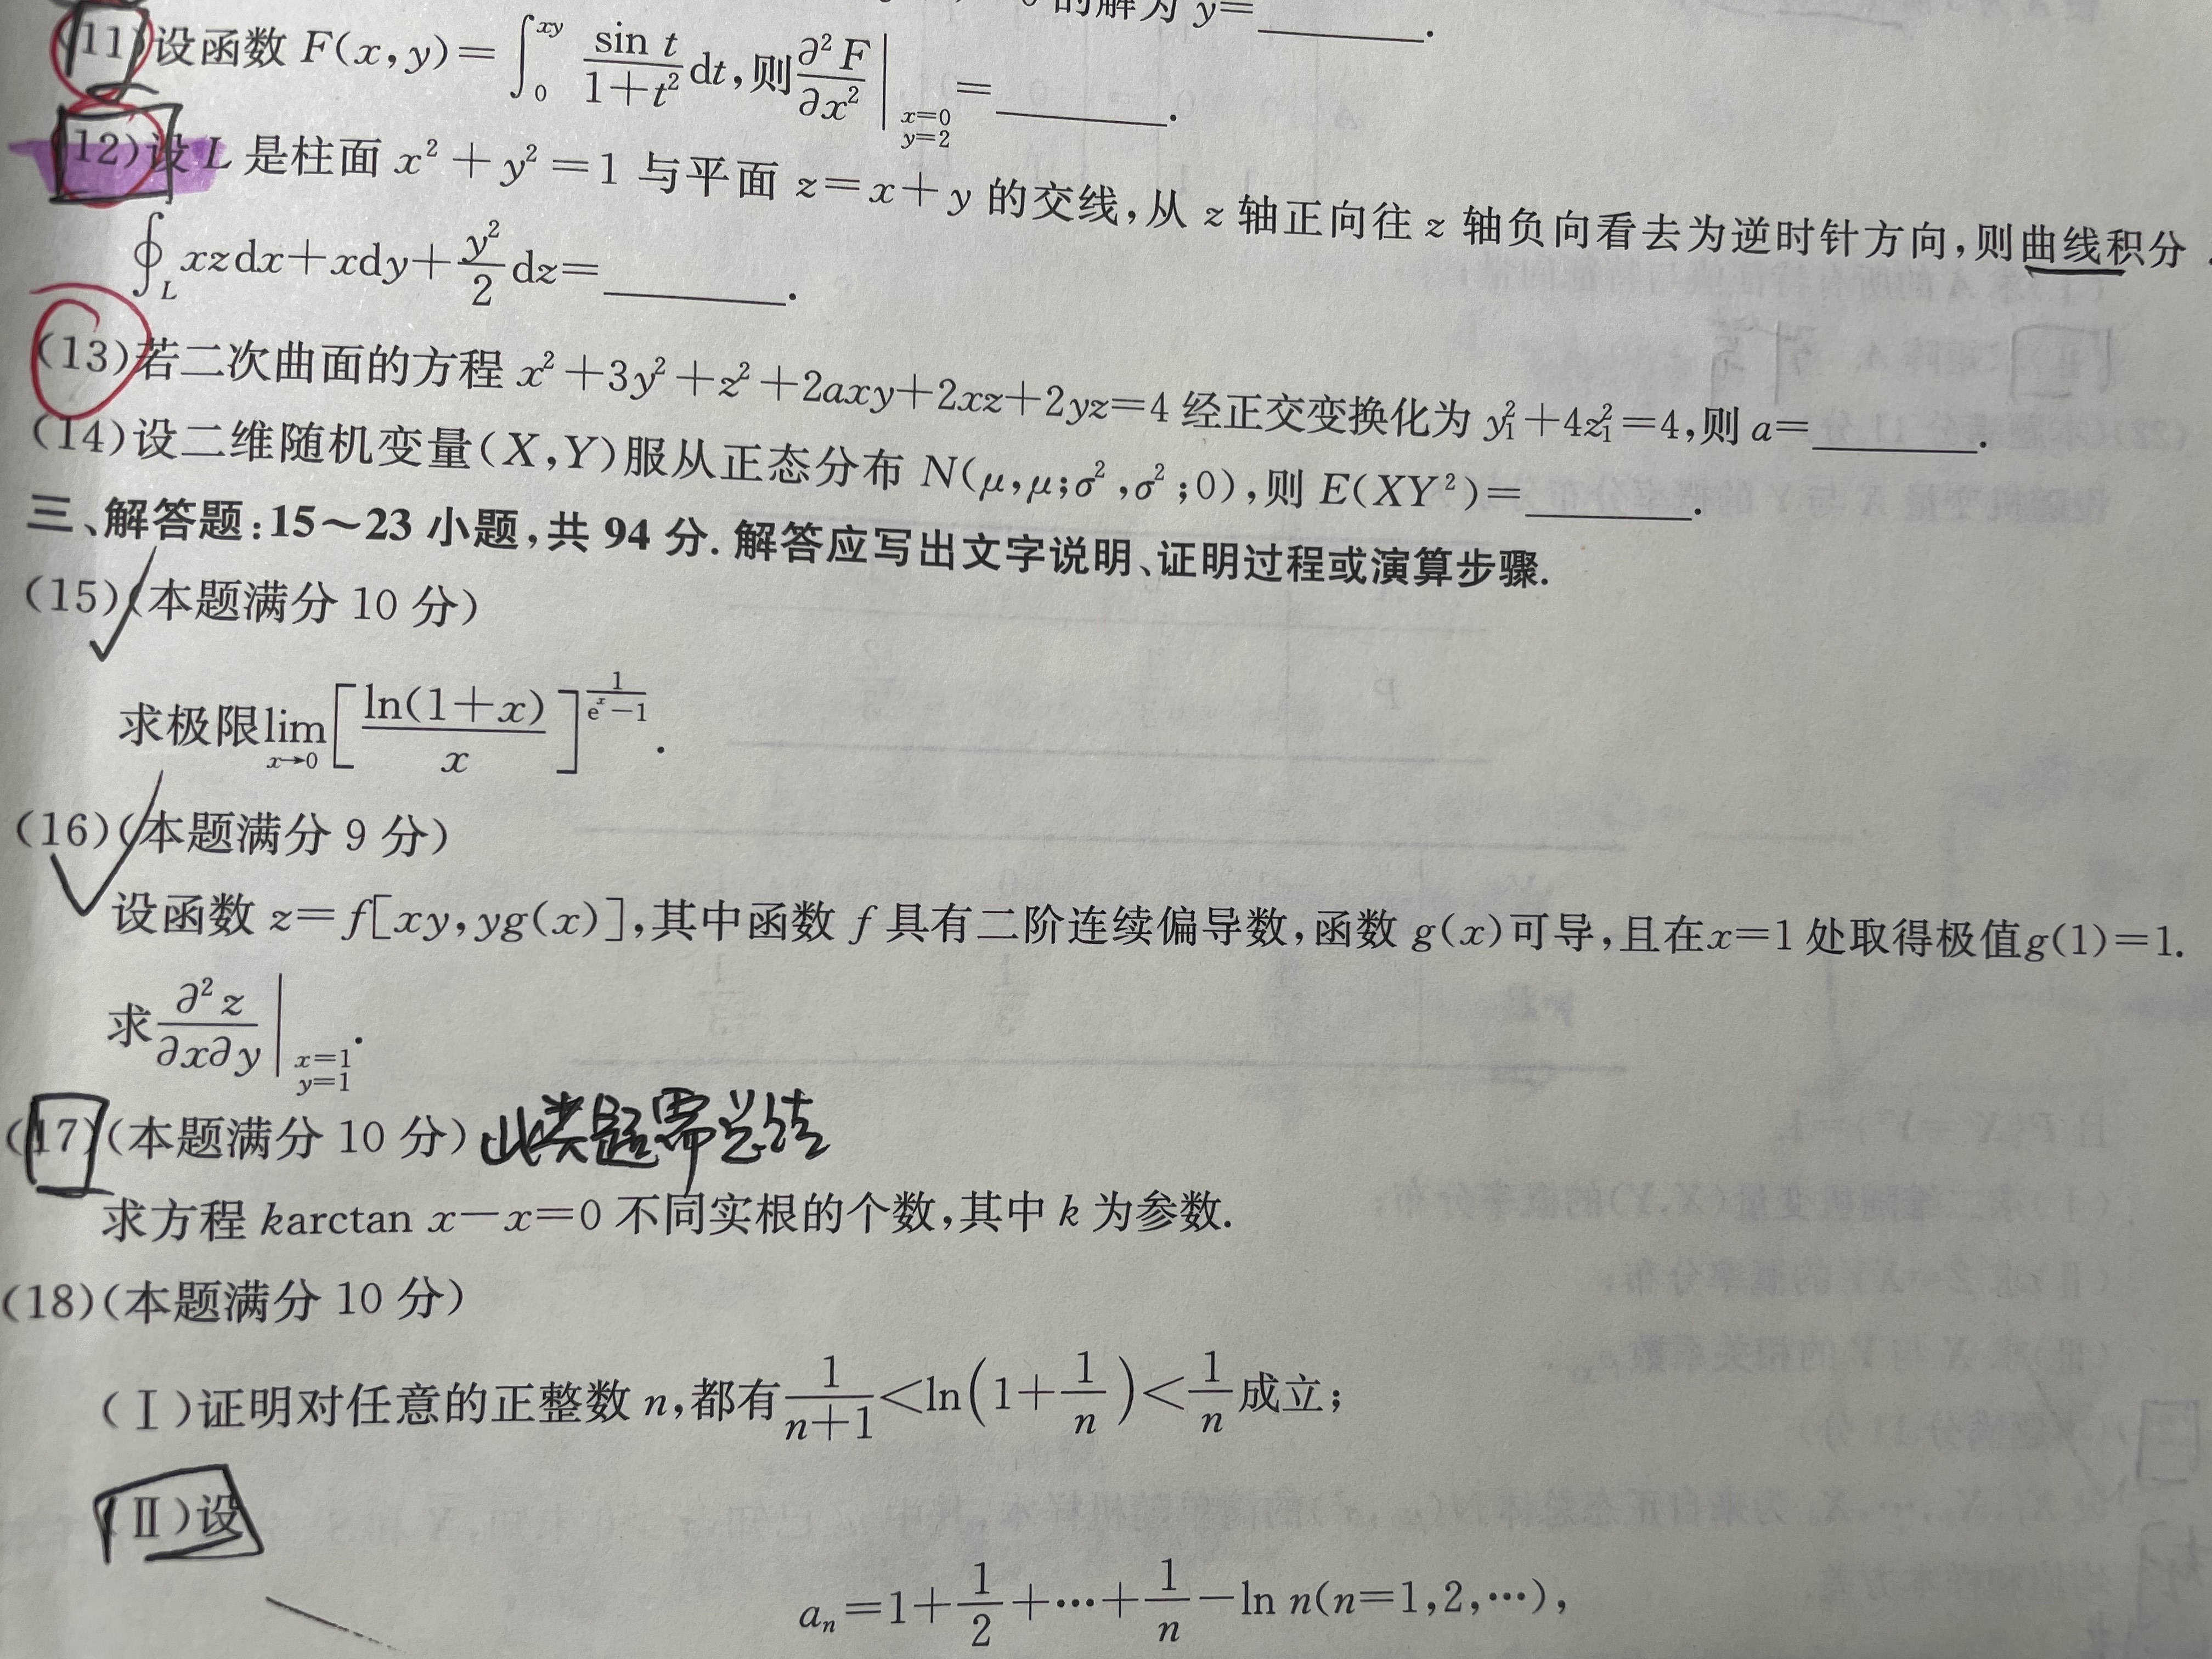 的解为 y=______.
(11)设函数 F(x,y)=∫₀^{xy} \frac{sin t}{1+t²}dt,则\frac{∂²F}{∂x²}|_{x=0, y=2}=______.
(12)设 L 是柱面 x²+y²=1 与平面 z=x+y 的交线,从 z 轴正向往 z 轴负向看去为逆时针方向,则曲线积分
∮_L xzdx+xdy+\frac{y²}{2}dz=______.
(13)若二次曲面的方程 x²+3y²+z²+2axy+2xz+2yz=4 经正交变换化为 y₁²+4z₁²=4,则 a=______.
(14)设二维随机变量(X,Y)服从正态分布 N(μ,μ;σ²,σ²;0),则 E(XY²)=______.
三、解答题:15～23 小题,共 94 分. 解答应写出文字说明、证明过程或演算步骤.
(15)(本题满分 10 分)
求极限\lim_{x→0}[\frac{ln(1+x)}{x}]^{\frac{1}{e^x-1}}.
(16)(本题满分 9 分)
设函数 z=f[xy,yg(x)],其中函数 f 具有二阶连续偏导数,函数 g(x)可导,且在x=1 处取得极值g(1)=1.
求\frac{∂²z}{∂x∂y}|_{x=1, y=1}.
(17)(本题满分 10 分) 此类题需总结
求方程 karctan x−x=0 不同实根的个数,其中 k 为参数.
(18)(本题满分 10 分)
(Ⅰ)证明对任意的正整数 n,都有\frac{1}{n+1}<ln(1+\frac{1}{n})<\frac{1}{n}成立;
(Ⅱ)设
aₙ=1+\frac{1}{2}+⋯+\frac{1}{n}−ln n(n=1,2,⋯),